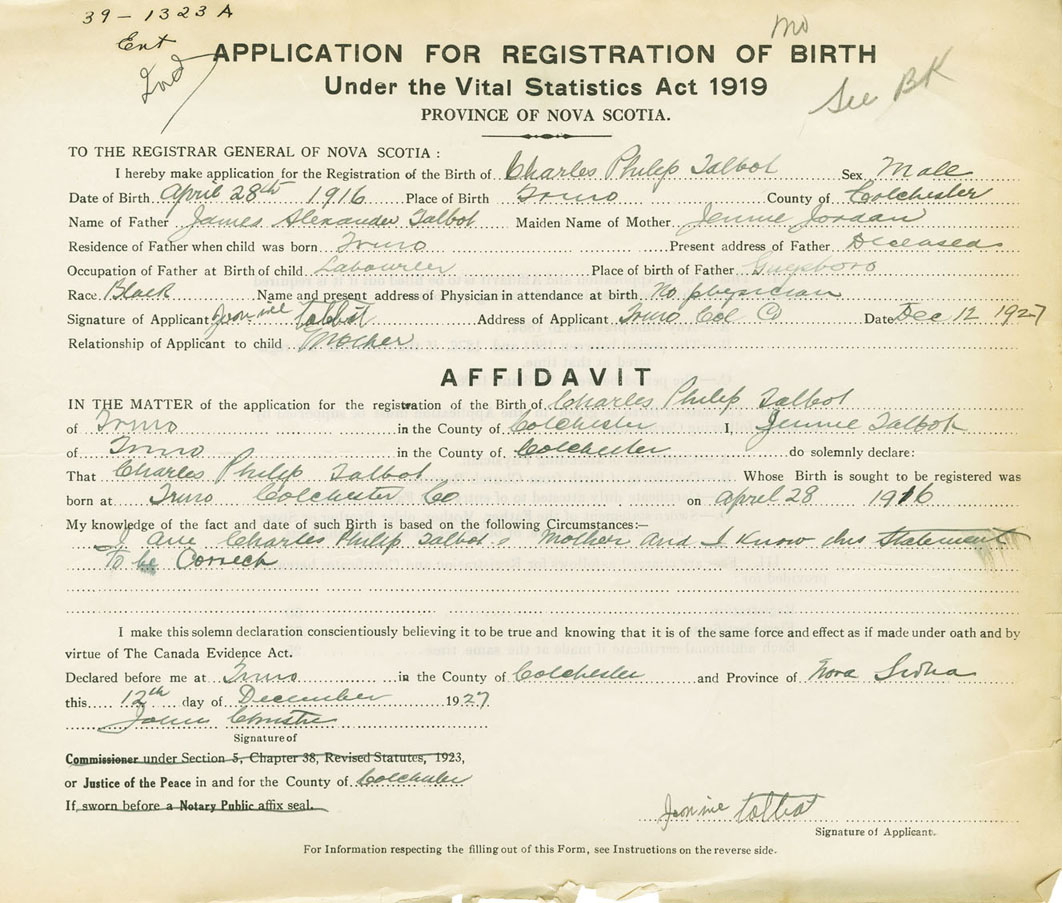 39 - 1323 A
Ent
Ind
mo
See BK
APPLICATION FOR REGISTRATION OF BIRTH
Under the Vital Statistics Act 1919
PROVINCE OF NOVA SCOTIA.
TO THE REGISTRAR GENERAL OF NOVA SCOTIA :
I hereby make application for the Registration of the Birth of Charles Philip Talbot Sex Male
Date of Birth April 28th 1916 Place of Birth Truro County of Colchester
Name of Father James Alexander Talbot Maiden Name of Mother Jennie Jordan
Residence of Father when child was born Truro Present address of Father Deceased
Occupation of Father at Birth of child Labourer Place of birth of Father Guysboro
Race Black Name and present address of Physician in attendance at birth. No physician
Signature of Applicant Jennie talbot Address of Applicant Truro Col Co Date Dec 12 1927
Relationship of Applicant to child Mother
AFFIDAVIT
IN THE MATTER of the application for the registration of the Birth of Charles Philip Talbot
of Truro in the County of Colchester I, Jennie Talbot
of Truro in the County of Colchester do solemnly declare:
That Charles Philip Talbot Whose Birth is sought to be registered was
born at Truro Colchester Co on April 28 1916
My knowledge of the fact and date of such Birth is based on the following Circumstances:—
I am Charles Philip Talbot's Mother and I know this Statement
To be Correct
I make this solemn declaration conscientiously believing it to be true and knowing that it is of the same force and effect as if made under oath and by
virtue of The Canada Evidence Act.
Declared before me at Truro in the County of Colchester and Province of Nova Scotia
this 12th day of December 1927
John Christie
Signature of
Commissioner under Section 5, Chapter 38, Revised Statutes, 1923,
or Justice of the Peace in and for the County of Colchester
If sworn before a Notary Public affix seal.
Jennie talbot
Signature of Applicant.
For Information respecting the filling out of this Form, see Instructions on the reverse side.